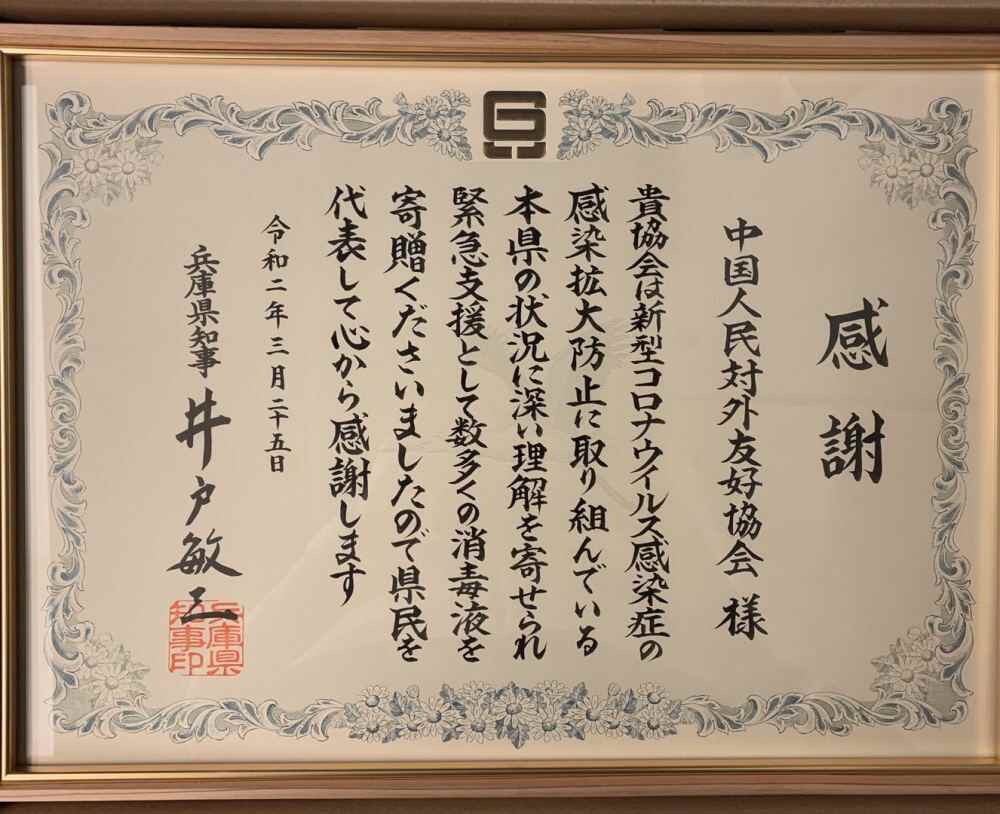 感謝
中国人民対外友好協会 様
貴協会は新型コロナウイルス感染症の
感染拡大防止に取り組んでいる
本県の状況に深い理解を寄せられ
緊急支援として数多くの消毒液を
寄贈くださいましたので県民を
代表して心から感謝します
令和二年三月二十五日
兵庫県知事 井戸敏三
兵庫県
知事印